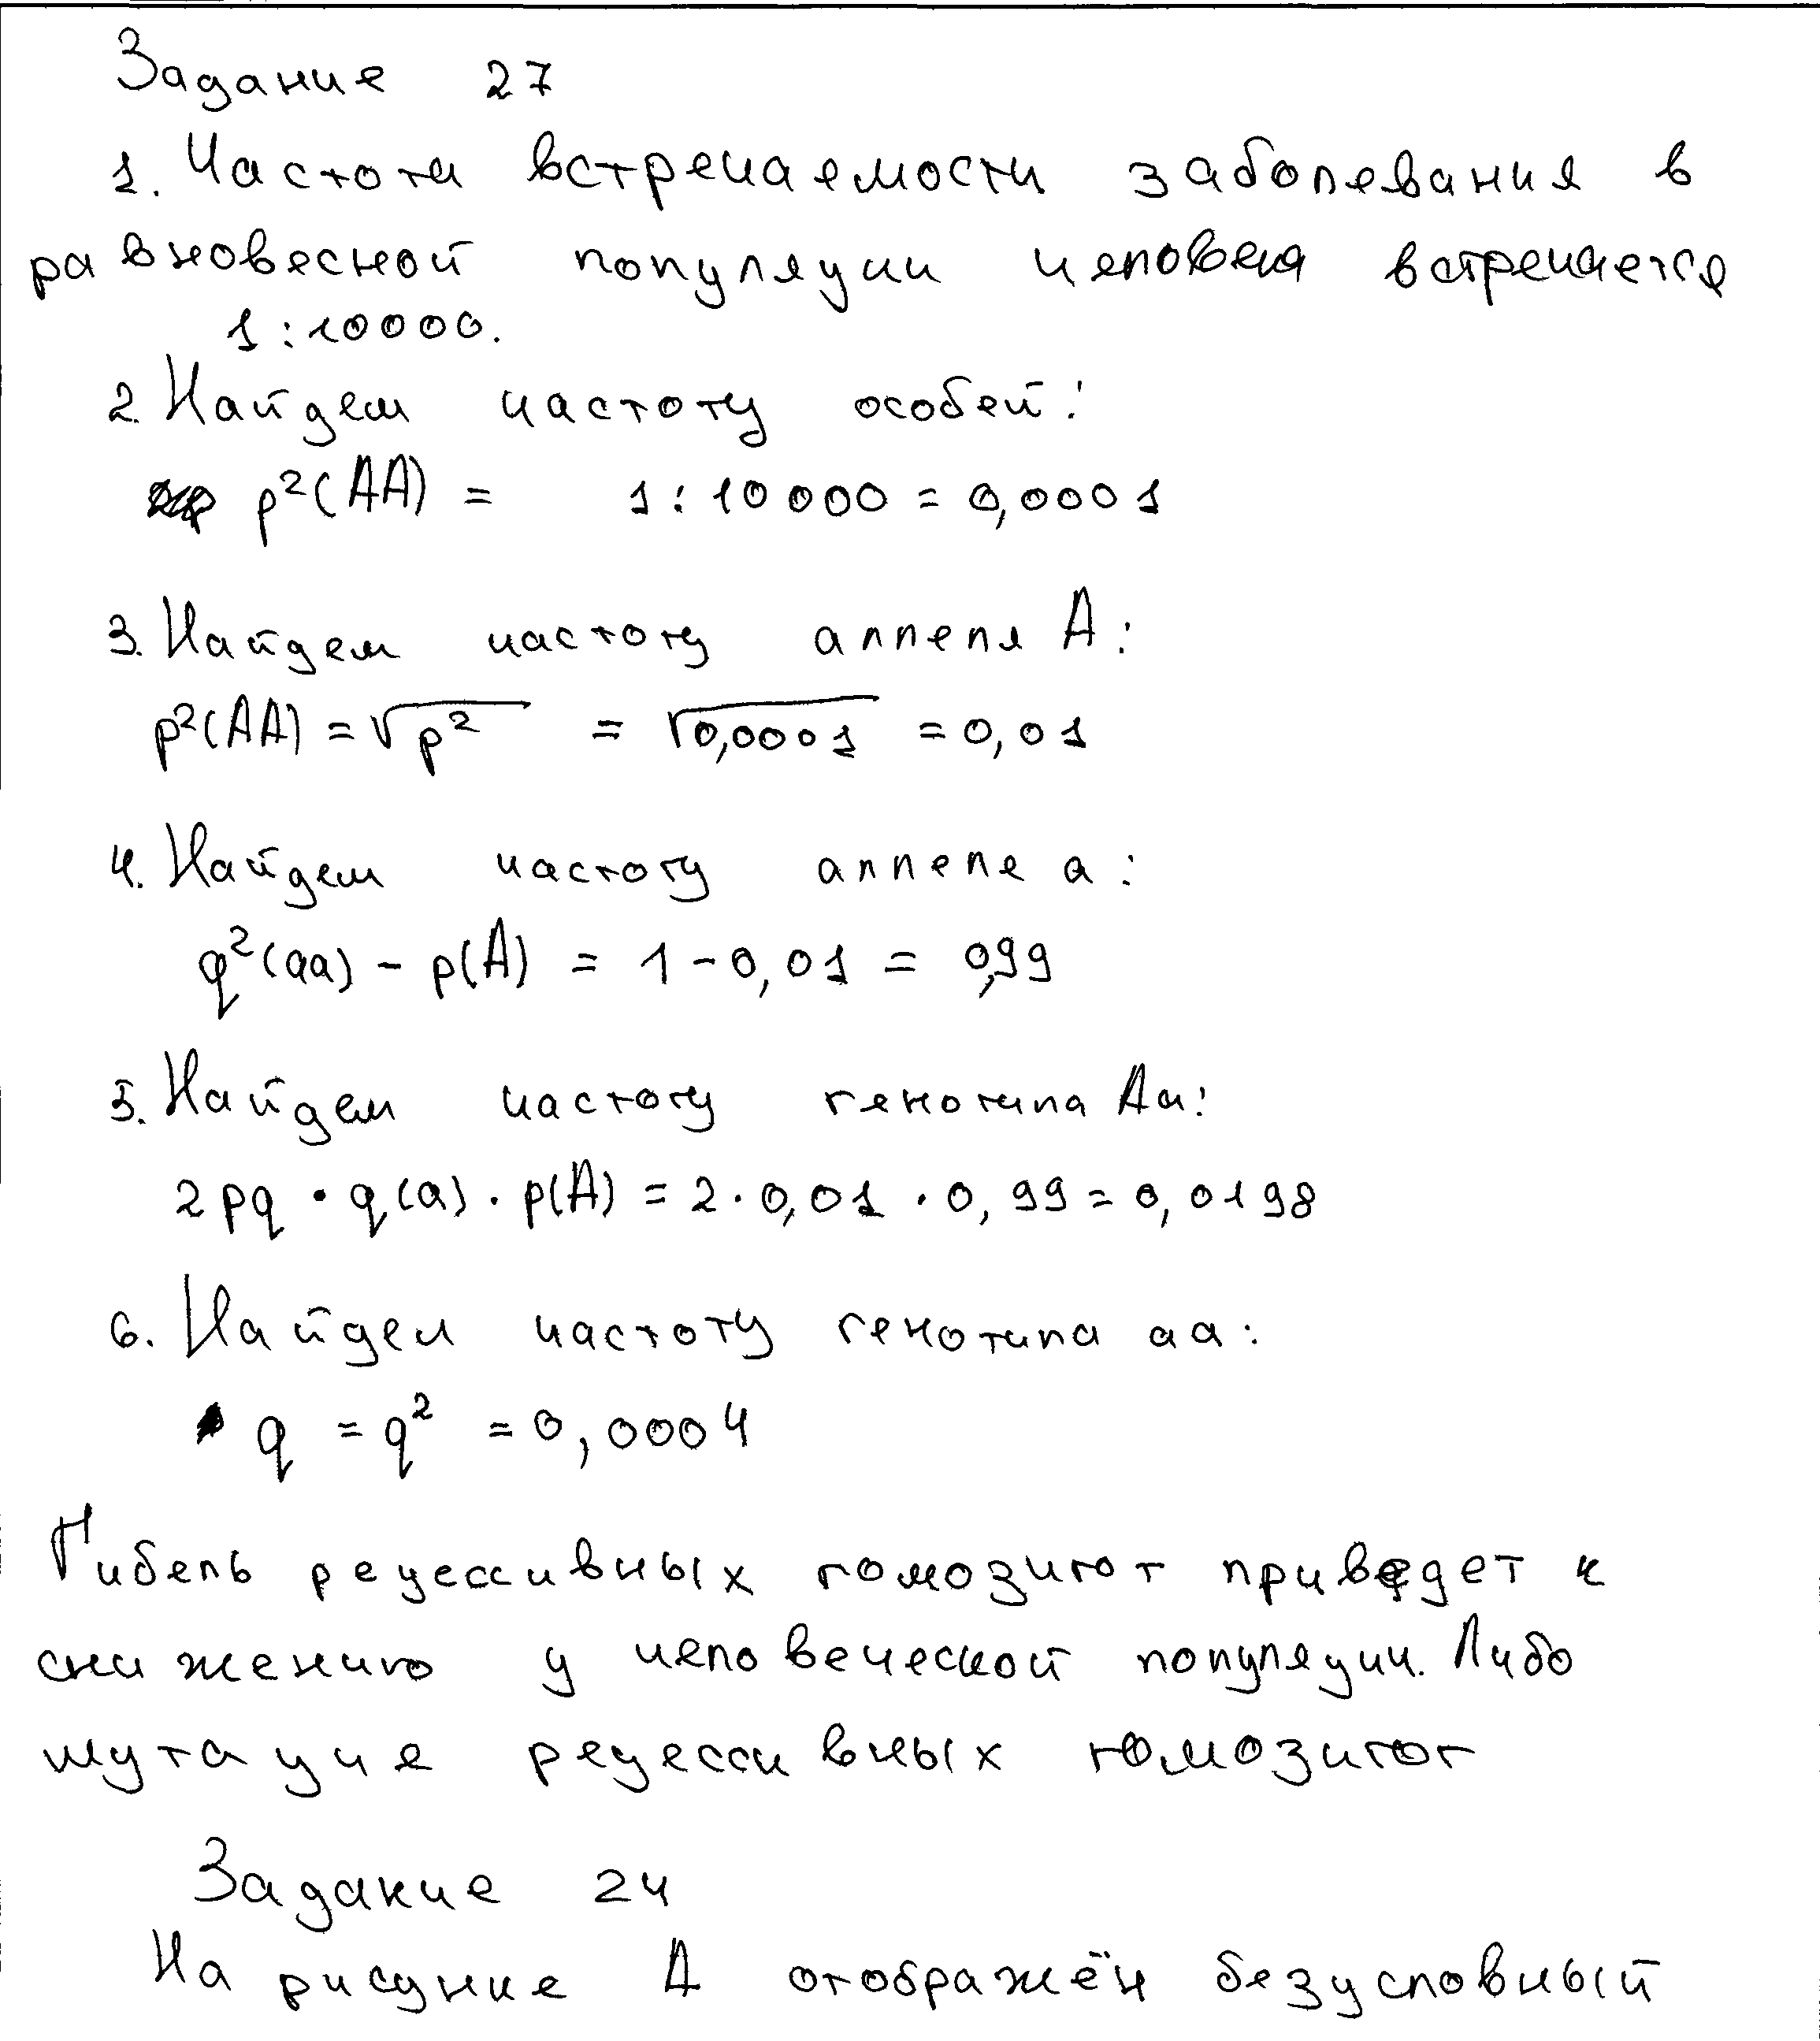 Задание 27
1. Частота встречаемости заболевания в
равновесной популяции человека встречается
1:10000.
2. Найдем частоту особей:
p²(AA) = 1:10000 = 0,0001
3. Найдем частоту аллеля A:
p²(AA) = √p² = √0,0001 = 0,01
4. Найдем частоту аллеле a:
q²(aa) - p(A) = 1 - 0,01 = 0,99
5. Найдем частоту генотипа Aa:
2pq · q(a) · p(A) = 2 · 0,01 · 0,99 = 0,0198
6. Найдем частоту генотипа aa:
q = q² = 0,0004
Гибель рецессивных гомозигот приведет к
снижению у человеческой популяции. Либо
мутация рецессивных гомозигот
Задание 24
На рисунке A отображён безусловный